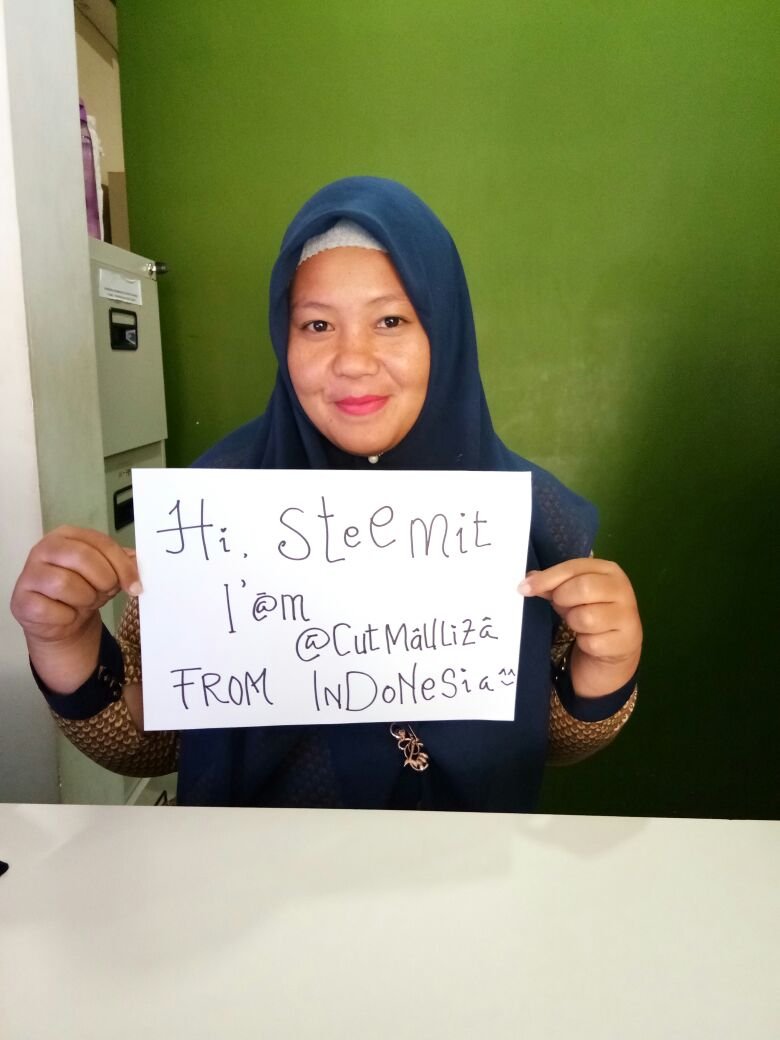 Hi, Steemit
I'am
@CutMauliza
FROM INDONeSia ^^